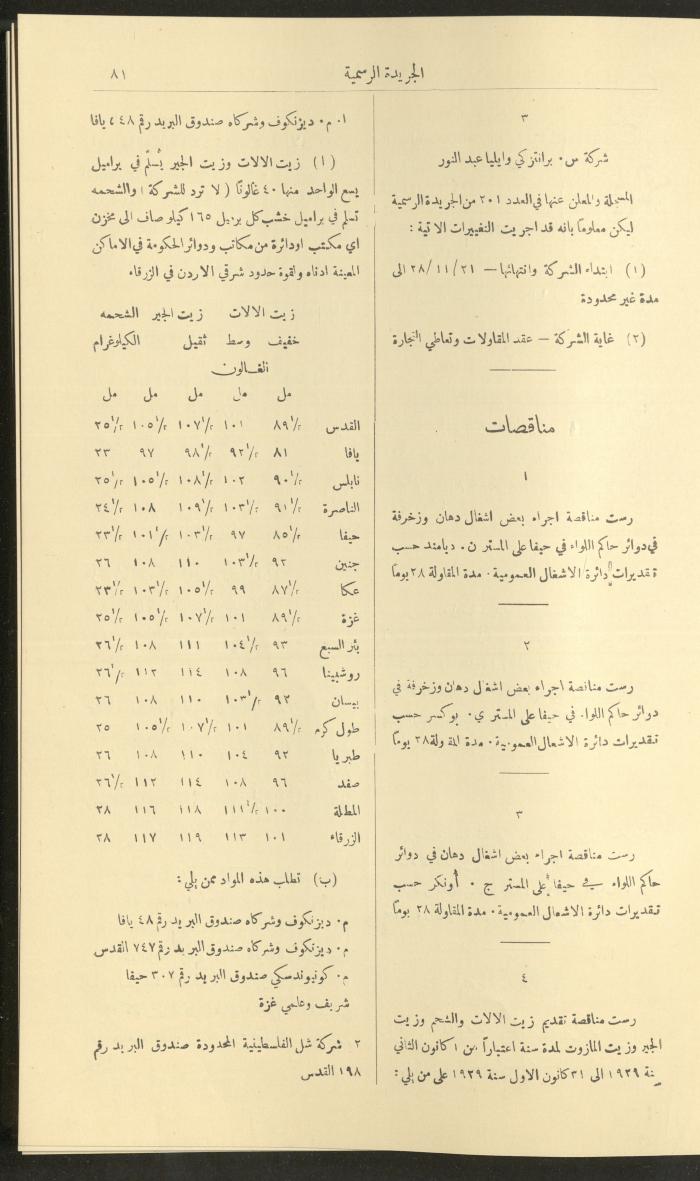 الجريدة الرسمية ٨١
٣
شركة س٠ برانتزكي وايليا عبد النور
المسجلة والمعلن عنها في العدد ٢٠١ من الجريدة الرسمية
ليكن معلوماً بانه قد اجريت التغييرات الاتية :
(١) ابتداء الشركة وانتهائها — ٢٨/١١/٢١ الى
مدة غير محدودة
(٢) غاية الشركة — عقد المقاولات وتعاطي التجارة
مناقصات
١
رست مناقصة اجراء بعض اشغال دهان وزخرفة
في دوائر حاكم اللواء في حيفا على المستر ن٠ ديامند حسب
تقديرات دائرة الاشغال العمومية٠ مدة المقاولة ٢٨ يوماً
٢
رست مناقصة اجراء بعض اشغال دهان وزخرفة في
دوائر حاكم اللواء في حيفا على المستر ي٠ بوكسر حسب
تقديرات دائرة الاشغال العمومية٠ مدة المقاولة ٢٨ يوماً
٣
رست مناقصة اجراء بعض اشغال دهان في دوائر
حاكم اللواء في حيفا على المستر ج ٠ أونكر حسب
تقديرات دائرة الاشغال العمومية٠ مدة المقاولة ٢٨ يوماً
٤
رست مناقصة تقديم زيت الالات والشحم وزيت
الجير وزيت المازوت لمدة سنة اعتباراً من ١ كانون الثاني
سنة ١٩٢٩ الى ٣١ كانون الاول سنة ١٩٢٩ على من يلي :
١٠ م٠ ديزنكوف وشركاه صندوق البريد رقم ٤٨ ، يافا
(١) زيت الالات وزيت الجير يُسلّم في براميل
يسع الواحد منها ٤٠ غالونا ( لا ترد للشركة ) والشحمه
تسلم في براميل خشب كل برميل ١٦٥ كيلو صاف الى مخزن
اي مكتب او دائرة من مكاتب ودوائر الحكومة في الاماكن
المعينة ادناه ولقوة حدود شرقي الاردن في الزرقاء
زيت الالات زيت الجير الشحمه
خفيف وسط ثقيل الكيلوغرام
الغالون
مل مل مل مل مل
القدس ٨٩١/٢ ١٠١ ١٠٧١/٢ ١٠٥١/٢ ٢٥١/٢
يافا ٨١ ٩٢١/٢ ٩٨١/٢ ٩٧ ٢٣
نابلس ٩٠١/٢ ١٠٢ ١٠٨١/٢ ١٠٥١/٢ ٢٥١/٢
الناصرة ٩١١/٢ ١٠٣١/٢ ١٠٩١/٢ ١٠٨ ٢٤١/٢
حيفا ٨٥١/٢ ٩٧ ١٠٣١/٢ ١٠١١/٢ ٢٣١/٢
جنين ٩٢ ١٠٣١/٢ ١١٠ ١٠٨ ٢٦
عكا ٨٧١/٢ ٩٩ ١٠٥١/٢ ١٠٣١/٢ ٢٣١/٢
غزة ٨٩١/٢ ١٠١ ١٠٧١/٢ ١٠٥١/٢ ٢٥١/٢
بئر السبع ٩٣ ١٠٤١/٢ ١١١ ١٠٨ ٢٦١/٢
روشبينا ٩٦ ١٠٨ ١١٤ ١١٢ ٢٦١/٢
بيسان ٩٢ ١٠٣١/٢ ١١٠ ١٠٨ ٢٦
طول كرم ٨٩١/٢ ١٠١ ١٠٧١/٢ ١٠٥١/٢ ٢٥
طبريا ٩٢ ١٠٤ ١١٠ ١٠٨ ٢٦
صفد ٩٦ ١٠٨ ١١٤ ١١٢ ٢٦١/٢
المطلة ١٠٠ ١١١١/٢ ١١٨ ١١٦ ٢٨
الزرقاء ١٠١ ١١٣ ١١٩ ١١٧ ٢٨
(ب) تطلب هذه المواد ممن يلي :
م٠ ديزنكوف وشركاه صندوق البريد رقم ٤٨ يافا
م٠ ديزنكوف وشركاه صندوق البريد رقم ٧٤٧ القدس
م٠ كونيوندسكي صندوق البريد رقم ٣٠٧ حيفا
شريف وعلمي غزة
٢ شركة شل الفلسطينية المحدودة صندوق البريد رقم
١٩٨ القدس